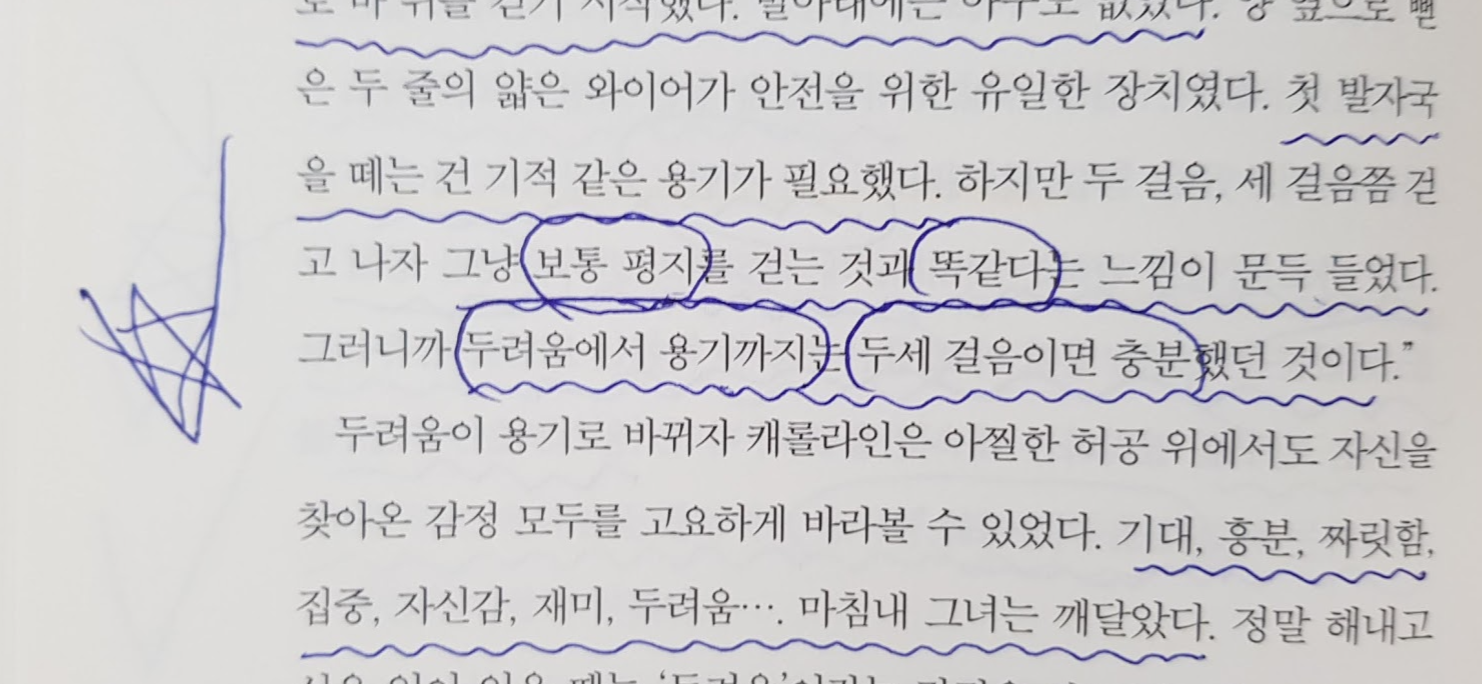 로 바 위를 걷기 시작했다. 발아래에는 아무도 없었다. 양 옆으로 뻗
은 두 줄의 얇은 와이어가 안전을 위한 유일한 장치였다. 첫 발자국
을 떼는 건 기적 같은 용기가 필요했다. 하지만 두 걸음, 세 걸음쯤 걷
고 나자 그냥 보통 평지를 걷는 것과 똑같다는 느낌이 문득 들었다.
그러니까 두려움에서 용기까지는 두세 걸음이면 충분했던 것이다.”
두려움이 용기로 바뀌자 캐롤라인은 아찔한 허공 위에서도 자신을
찾아온 감정 모두를 고요하게 바라볼 수 있었다. 기대, 흥분, 짜릿함,
집중, 자신감, 재미, 두려움…. 마침내 그녀는 깨달았다. 정말 해내고